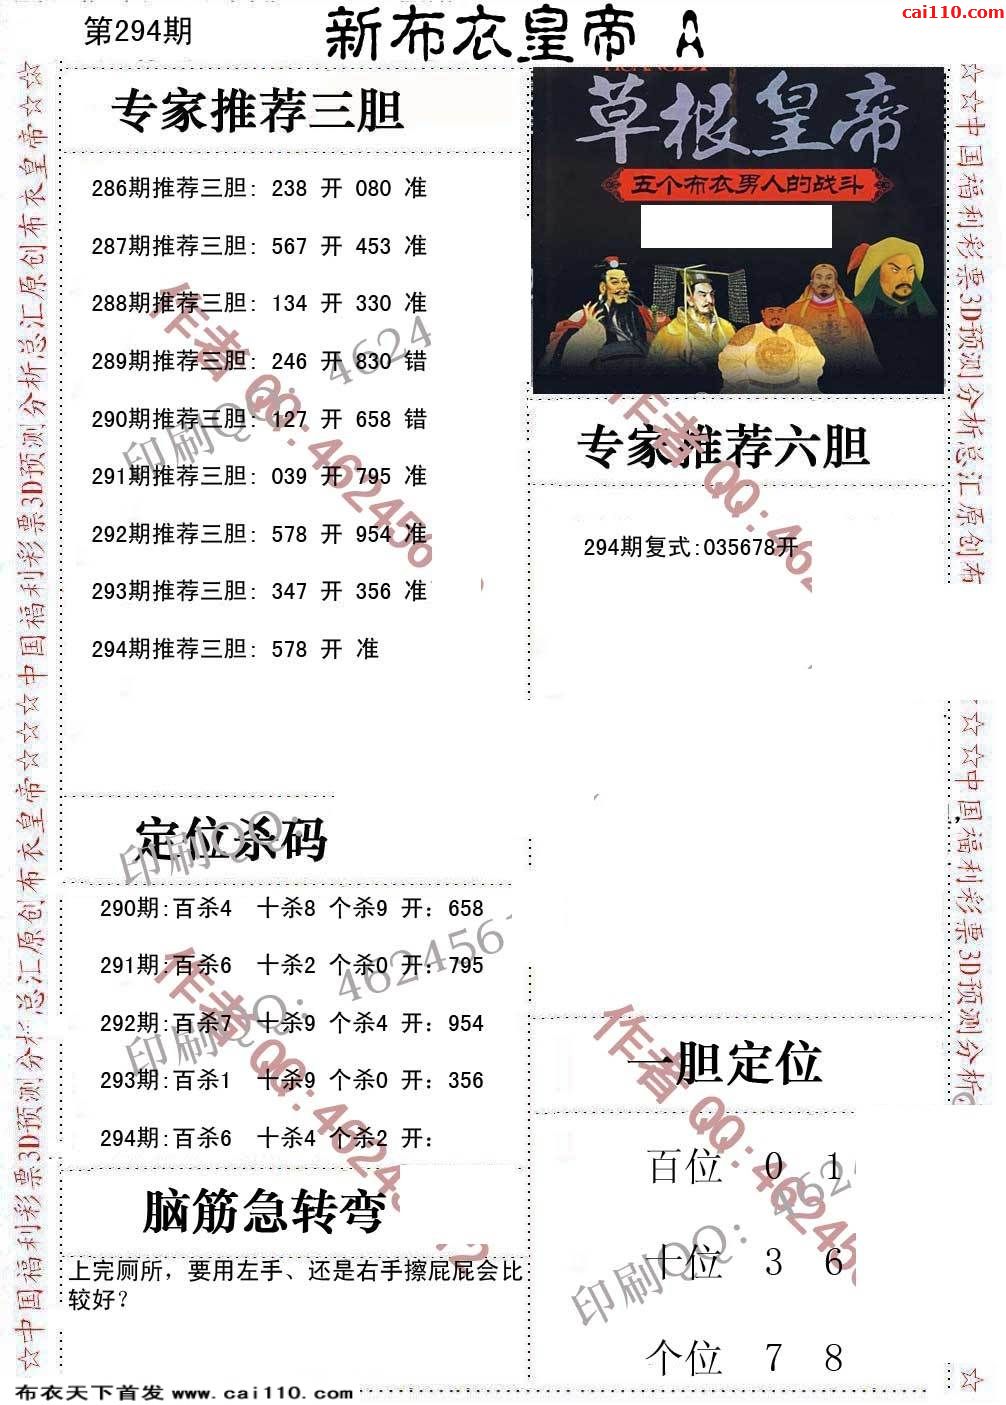 cai110.com
第294期
新布衣皇帝 A
专家推荐三胆
286期推荐三胆: 238 开 080 准
287期推荐三胆: 567 开 453 准
288期推荐三胆: 134 开 330 准
289期推荐三胆: 246 开 830 错
290期推荐三胆: 127 开 658 错
291期推荐三胆: 039 开 795 准
292期推荐三胆: 578 开 954 准
293期推荐三胆: 347 开 356 准
294期推荐三胆: 578 开 准
草根皇帝
五个布衣男人的战斗
专家推荐六胆
294期复式:035678开
定位杀码
290期:百杀4 十杀8 个杀9 开: 658
291期:百杀6 十杀2 个杀0 开: 795
292期:百杀7 十杀9 个杀4 开: 954
293期:百杀1 十杀9 个杀0 开: 356
294期:百杀6 十杀4 个杀2 开:
脑筋急转弯
上完厕所，要用左手、还是右手擦屁屁会比
较好？
一胆定位
百位 0 1
十位 3 6
个位 7 8
☆中国福利彩票3D预测分析总汇原创布衣皇帝☆☆☆中国福利彩票3D预测分析总汇原创布衣皇帝☆☆
☆☆中国福利彩票3D预测分析总汇原创布
☆☆中国福利彩票3D预测分析
☆
作者QQ:462456
印刷QQ: 4624
作者QQ:462
印刷QQ:
作者QQ:4624
印刷QQ: 462456
作者QQ:46245
印刷QQ: 462
布衣天下首发 www.cai110.com